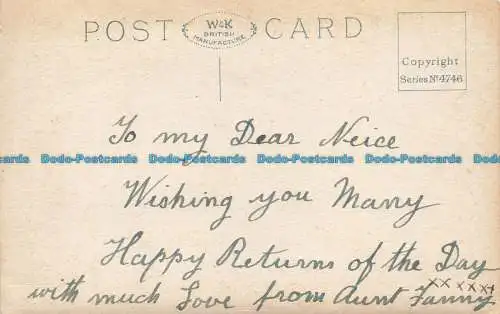 POST CARD
W&K
BRITISH
MANUFACTURE
Copyright
Series No 4746
To my Dear Neice
Dodo-Postcards Dodo-Postcards Dodo-Postcards Dodo-Postcards Dodo-Postcards
Wishing you Many
Happy Returns of the Day
with much Love from Aunt Fanny
xx xxxx